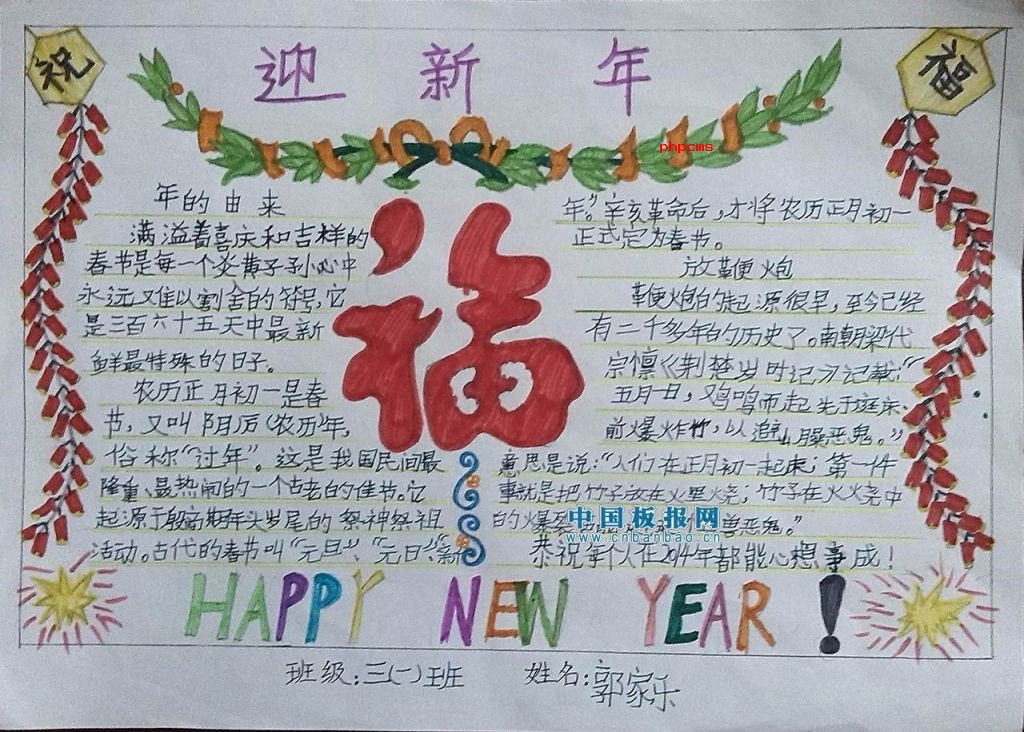 祝
福
迎新年
phpcms
年的由来
满溢着喜庆和吉祥的
春节是每一个炎黄子孙心中
永远难以割舍的符号,它
是三百六十五天中最新
鲜最特殊的日子。
农历正月初一是春
节,又叫阴历(农历)年,
俗称“过年”。这是我国民间最
隆重、最热闹的一个古老的佳节。它
起源于殷商期年头岁尾的祭神祭祖
活动。古代的春节叫“元旦”、“元日”、“新
福
年”。辛亥革命后,才将农历正月初一
正式定为春节。
放鞭炮
鞭炮的起源很早,至今已经
有二千多年的历史了。南朝梁代
宗懔《荆楚岁时记》记载:“
五月一日,又鸡鸣而起先于庭床
前爆炸竹,以避山臊恶鬼。”
意思是说:“人们在正月初一起床;第一件
事就是把竹子放在火里烧;竹子在火火烧中
的爆 兽恶鬼。”
恭祝每个人在2014年都能心想事成!
中国板报网
www.cnbanbao.cn
HAPPY NEW YEAR!
班级:三(一)班 姓名:郭家乐